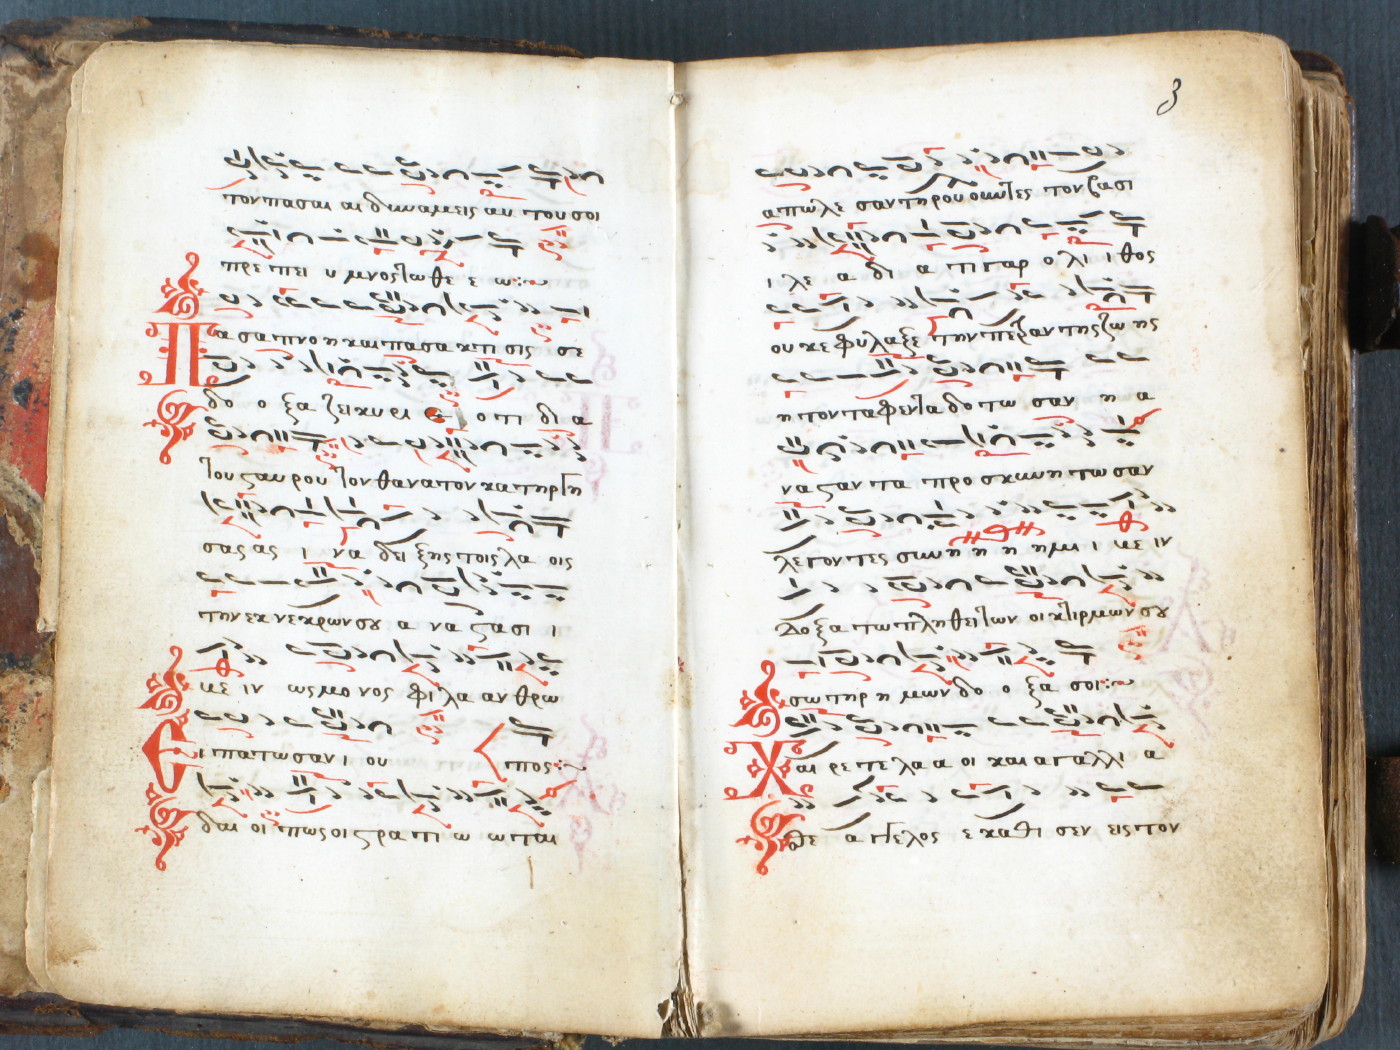 τον πασαι αι δυναμεις αυ του σοι
πρε πει υ μνος τω θε ε ω:~
Πα σα πνο η και πασα κτι σις σε
δο ο ξα ζει κυ ρι ε ο τι δι α
του σταυ ρου τον θανατον κατηργη
σας ας ι να δει ξης τοις λα οις
την εκ νεκρων σου α να στασι ι
με ιν ως μο νος φι λα αν θρω
πος:~
Ει πατωσαν ι ου
δαι οι πως οι στρα τι ω ω ται
3
απωλε σαν τηρουουντες τον βασι
ι λε α δι α τι γαρ ο λι ι θος
ουκ ε φυλαξε την πετραν της ζω ης
η τον ταφεντα δοτω σαν η α
να σταν τα προ σκυνη τω σαν
λεγοντες συν η η η ημι ι με ιν
Δοξα τω πληθει των οικτιρμων σου
σωτηρ η μων δο ο ξα σοι:~
Χαι ρε τε λα α οι και αγαλλι α
θε α γγελος ε καθι σεν εις τον